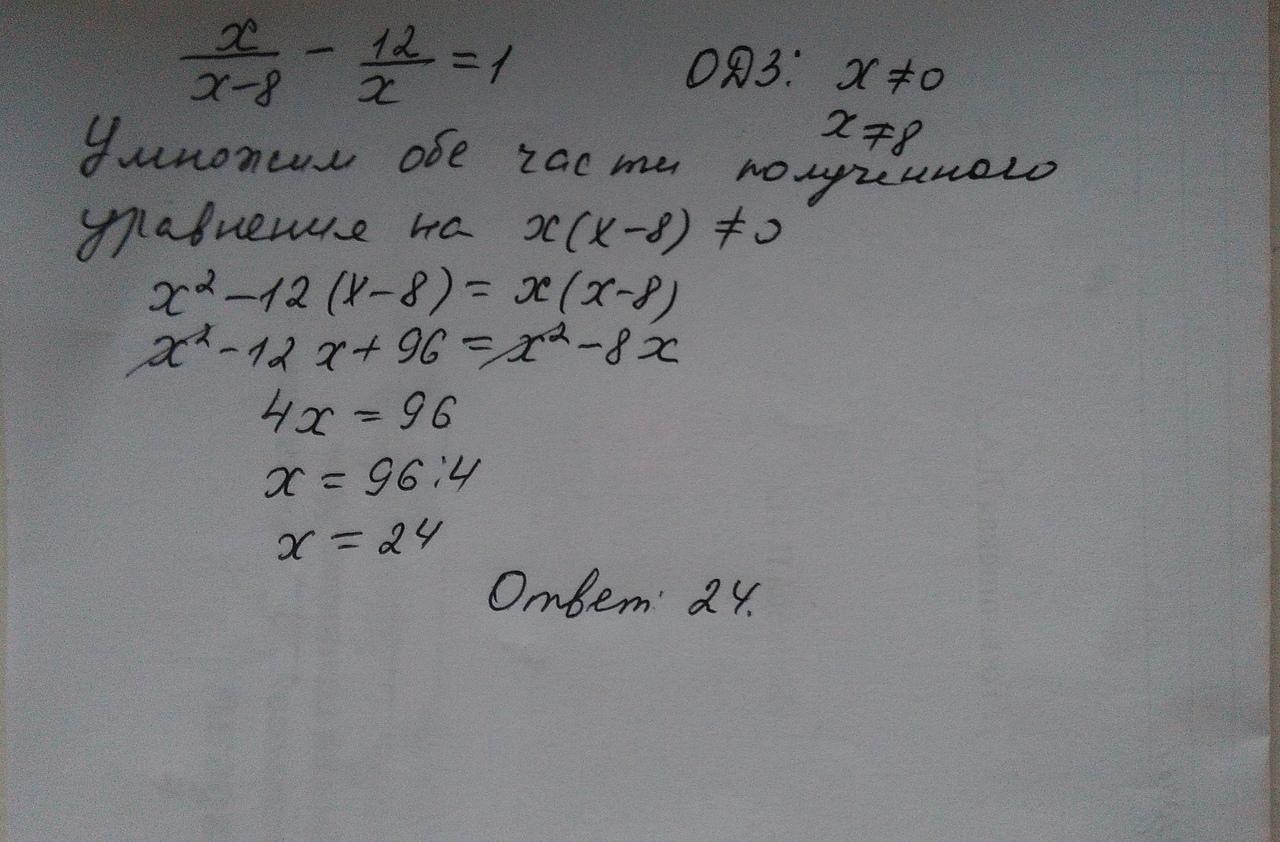 x/(x-8) - 12/x = 1 ОДЗ: x ≠ 0
x ≠ 8
Умножим обе части полученного
уравнения на x(x-8) ≠ 0
x² - 12(x-8) = x(x-8)
x² - 12x + 96 = x² - 8x
4x = 96
x = 96:4
x = 24
Ответ: 24.